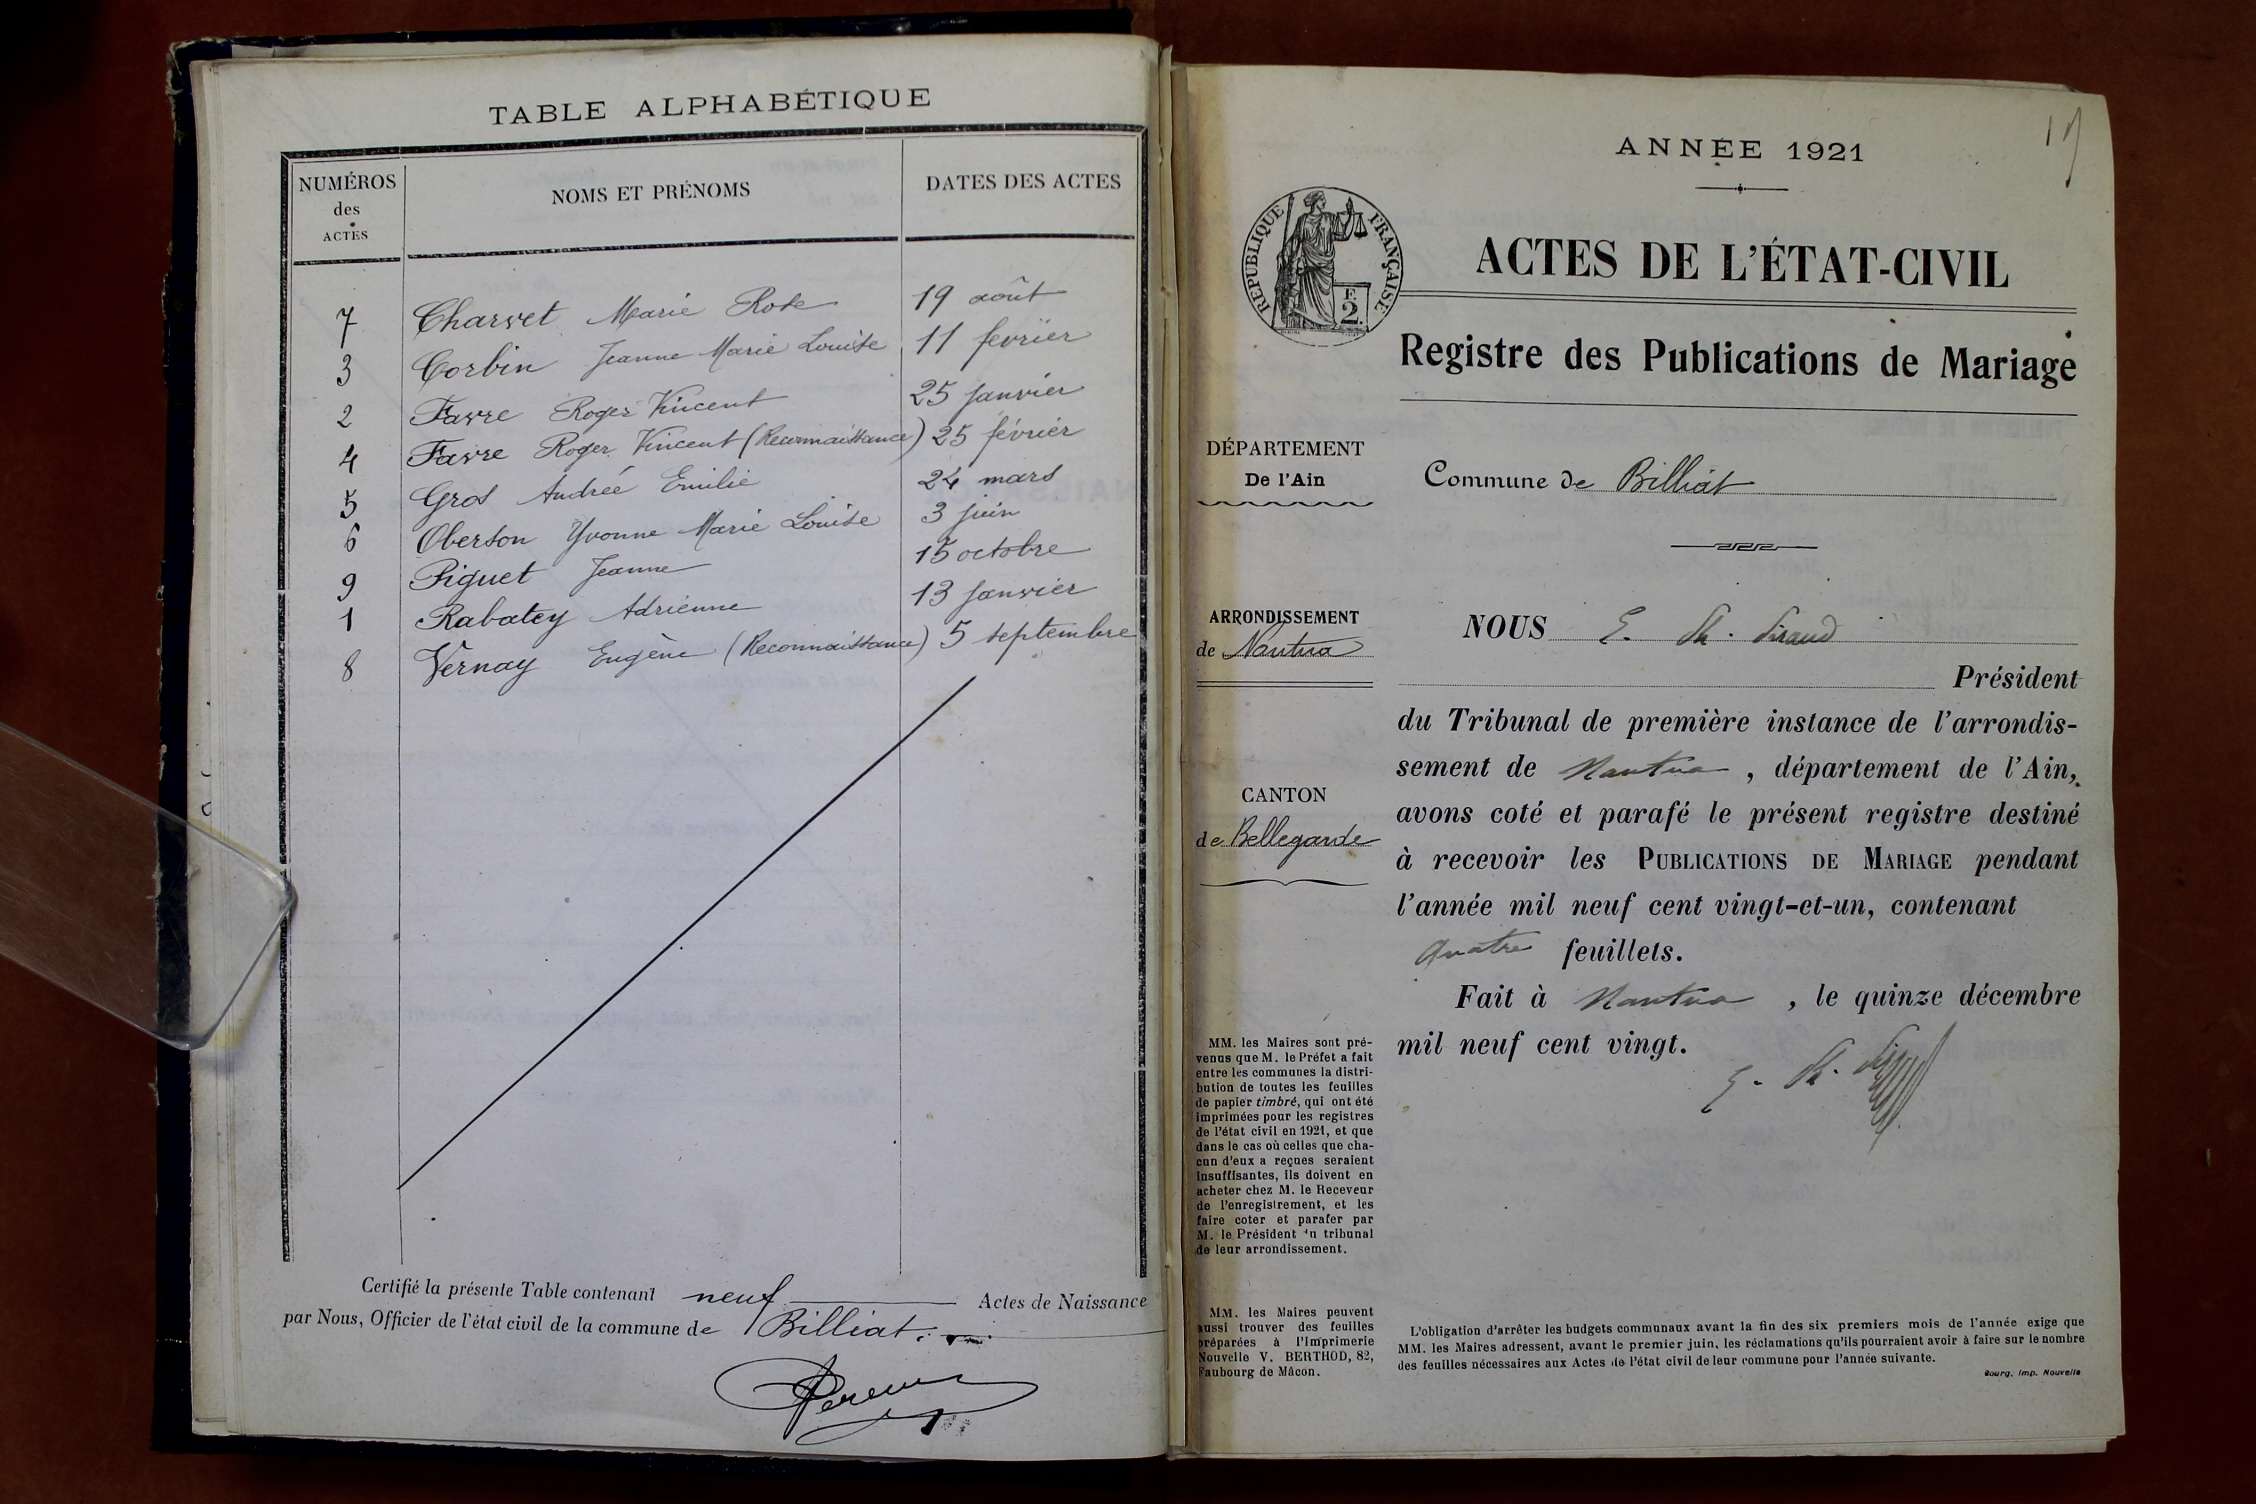 TABLE ALPHABÉTIQUE
NUMÉROS
des
ACTES
NOMS ET PRÉNOMS
DATES DES ACTES
7 Charvet Marie Rose 19 août
3 Corbin Jeanne Marie Louise 11 février
2 Favre Roger Vincent 25 janvier
4 Favre Roger Vincent (Reconnaissance) 25 février
5 Gros Andrée Emilie 24 mars
6 Oberson Yvonne Marie Louise 3 juin
9 Piguet Jeanne 15 octobre
1 Rabatey Adrienne 13 janvier
8 Vernay Eugène (Reconnaissance) 5 septembre
Certifié la présente Table contenant neuf Actes de Naissance
par Nous, Officier de l'état civil de la commune de Billiat.
ANNÉE 1921
RÉPUBLIQUE FRANÇAISE
F
2.
ACTES DE L'ÉTAT-CIVIL
Registre des Publications de Mariage
DÉPARTEMENT
De l'Ain
Commune de Billiat
ARRONDISSEMENT
de Nantua
CANTON
de Bellegarde
NOUS E.
Président
du Tribunal de première instance de l'arrondis-
sement de Nantua, département de l'Ain,
avons coté et parafé le présent registre destiné
à recevoir les PUBLICATIONS DE MARIAGE pendant
l'année mil neuf cent vingt-et-un, contenant
quatre feuillets.
Fait à Nantua, le quinze décembre
mil neuf cent vingt.
MM. les Maires sont pré-
venus que M. le Préfet a fait
entre les communes la distri-
bution de toutes les feuilles
de papier timbré, qui ont été
imprimées pour les registres
de l'état civil en 1921, et que
dans le cas où celles que cha-
cun d'eux a reçues seraient
insuffisantes, ils doivent en
acheter chez M. le Receveur
de l'enregistrement, et les
faire coter et parafer par
M. le Président du tribunal
de leur arrondissement.
MM. les Maires peuvent
aussi trouver des feuilles
préparées à l'Imprimerie
Nouvelle V. BERTHOD, 82,
Faubourg de Mâcon.
L'obligation d'arrêter les budgets communaux avant la fin des six premiers mois de l'année exige que
MM. les Maires adressent, avant le premier juin, les réclamations qu'ils pourraient avoir à faire sur le nombre
des feuilles nécessaires aux Actes de l'état civil de leur commune pour l'année suivante.
Bourg, Imp. Nouvelle